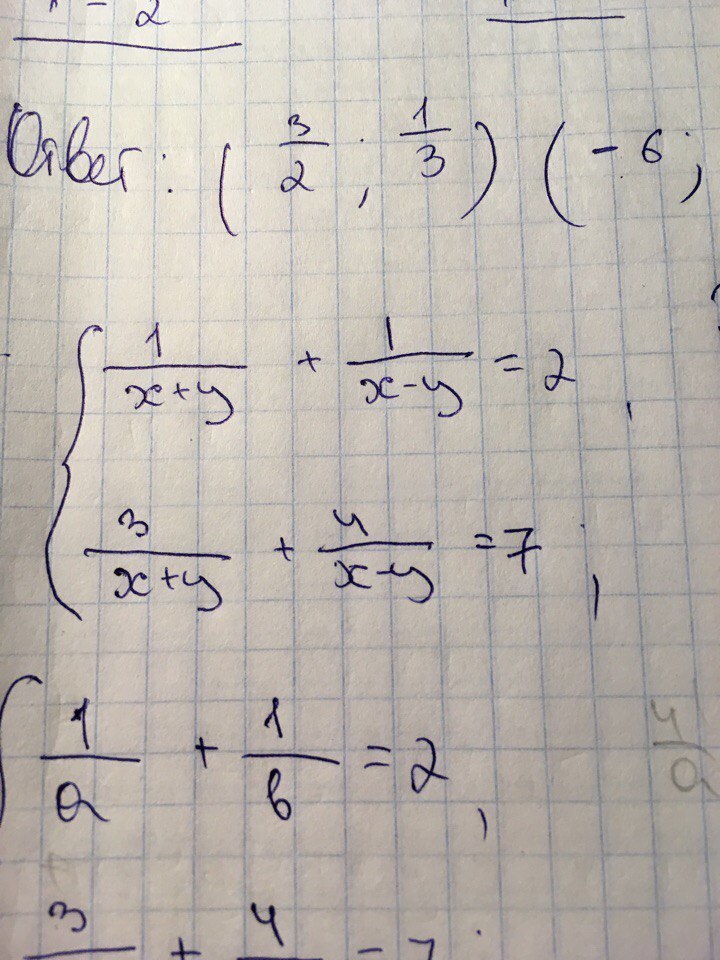 - 2
Ответ: (3/2; 1/3) (-6;
{ 1/(x+y) + 1/(x-y) = 2,
3/(x+y) + 4/(x-y) = 7;
{ 1/a + 1/b = 2,
4/a
3 + 4 = 7;